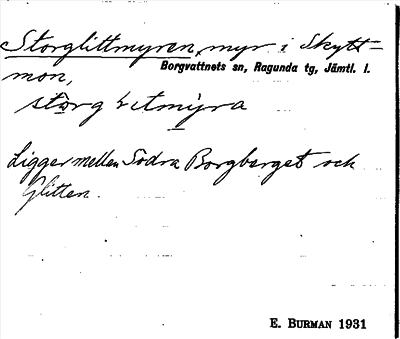 Storglittmyren, myr i Skytt=
mon, Borgvattnets sn, Ragunda tg, Jämtl. l.
Ligger mellan Södra Borgberget och
Glitten.
E. BURMAN 1931